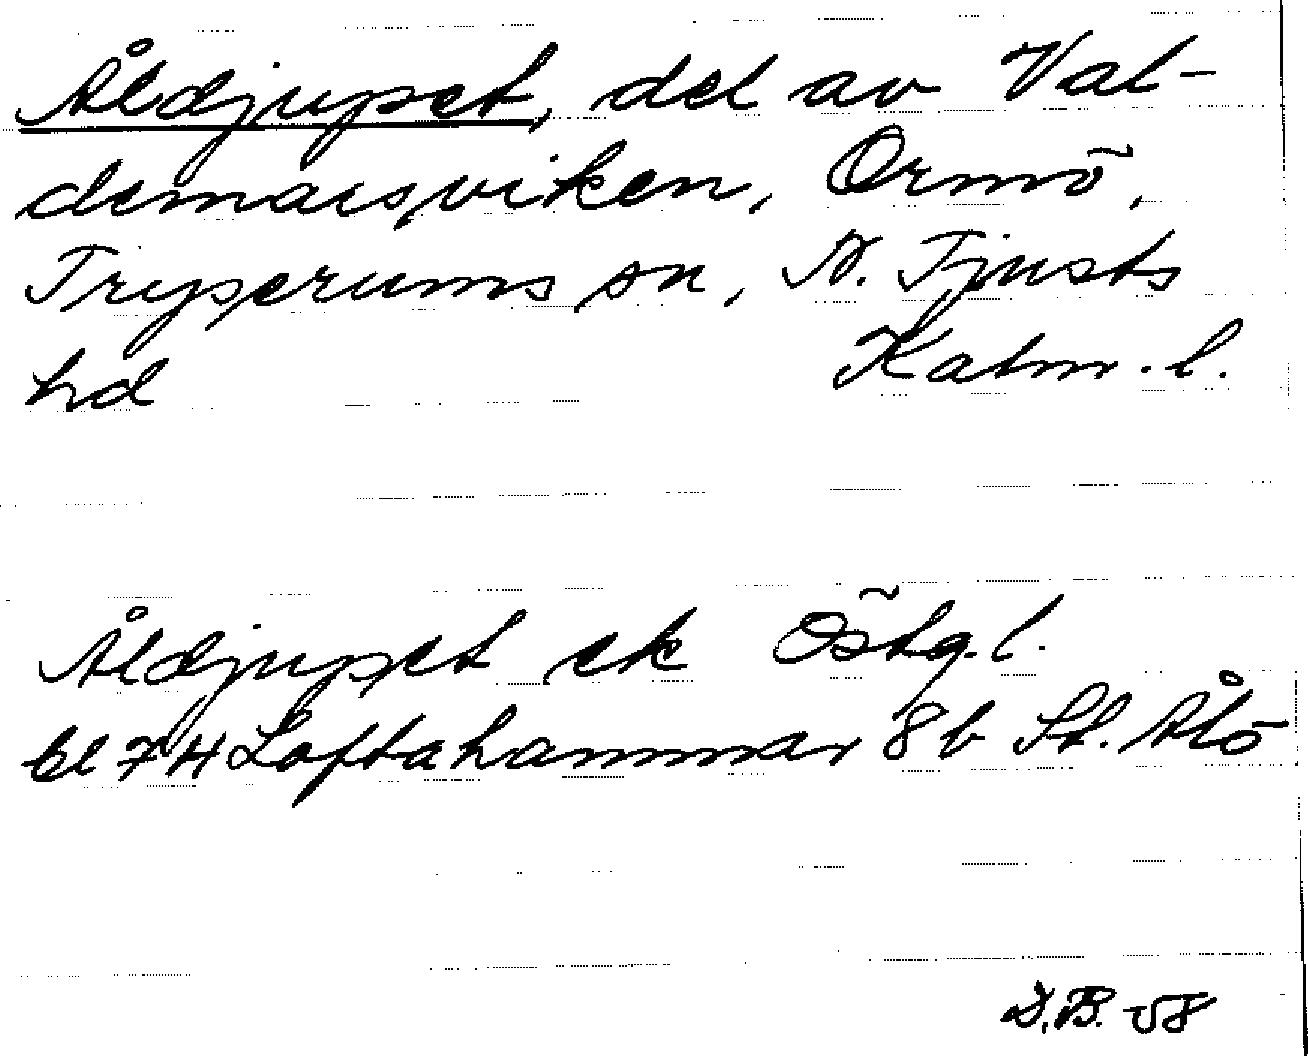 Åldjupet, del av Val-
demarsviken, Ormö,
Tryserums sn, N. Tjusts
hd Kalm. l.
Åldjupet ek Östg. l.
bl 7H Loftahammar 8b St. Ålö
D.B. 58